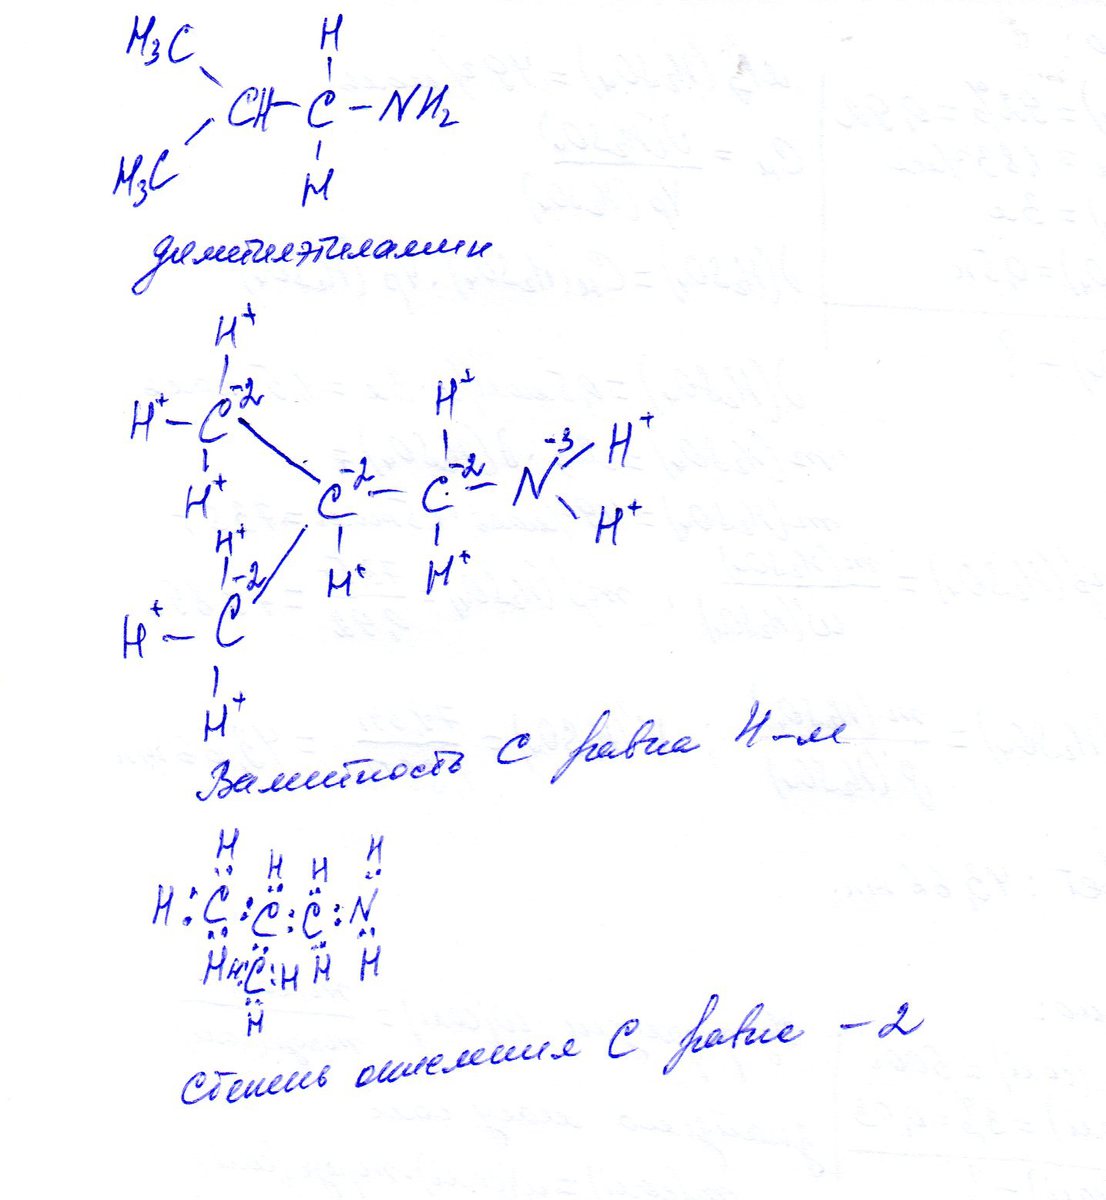 H
H₃C
CH – C – NH₂
H₃C
H
диметилэтиламин
H⁺
H⁺ – C⁻² H⁺
H⁺ C⁻² – C⁻² – N⁻³ H⁺
H⁺ H⁺ H⁺ H⁺
H⁺ – C⁻²
H⁺
Валентность C равна 4-м
H H H H
H : C : C : C : N
H H : C : H H H
H
Степень окисления C равна – 2